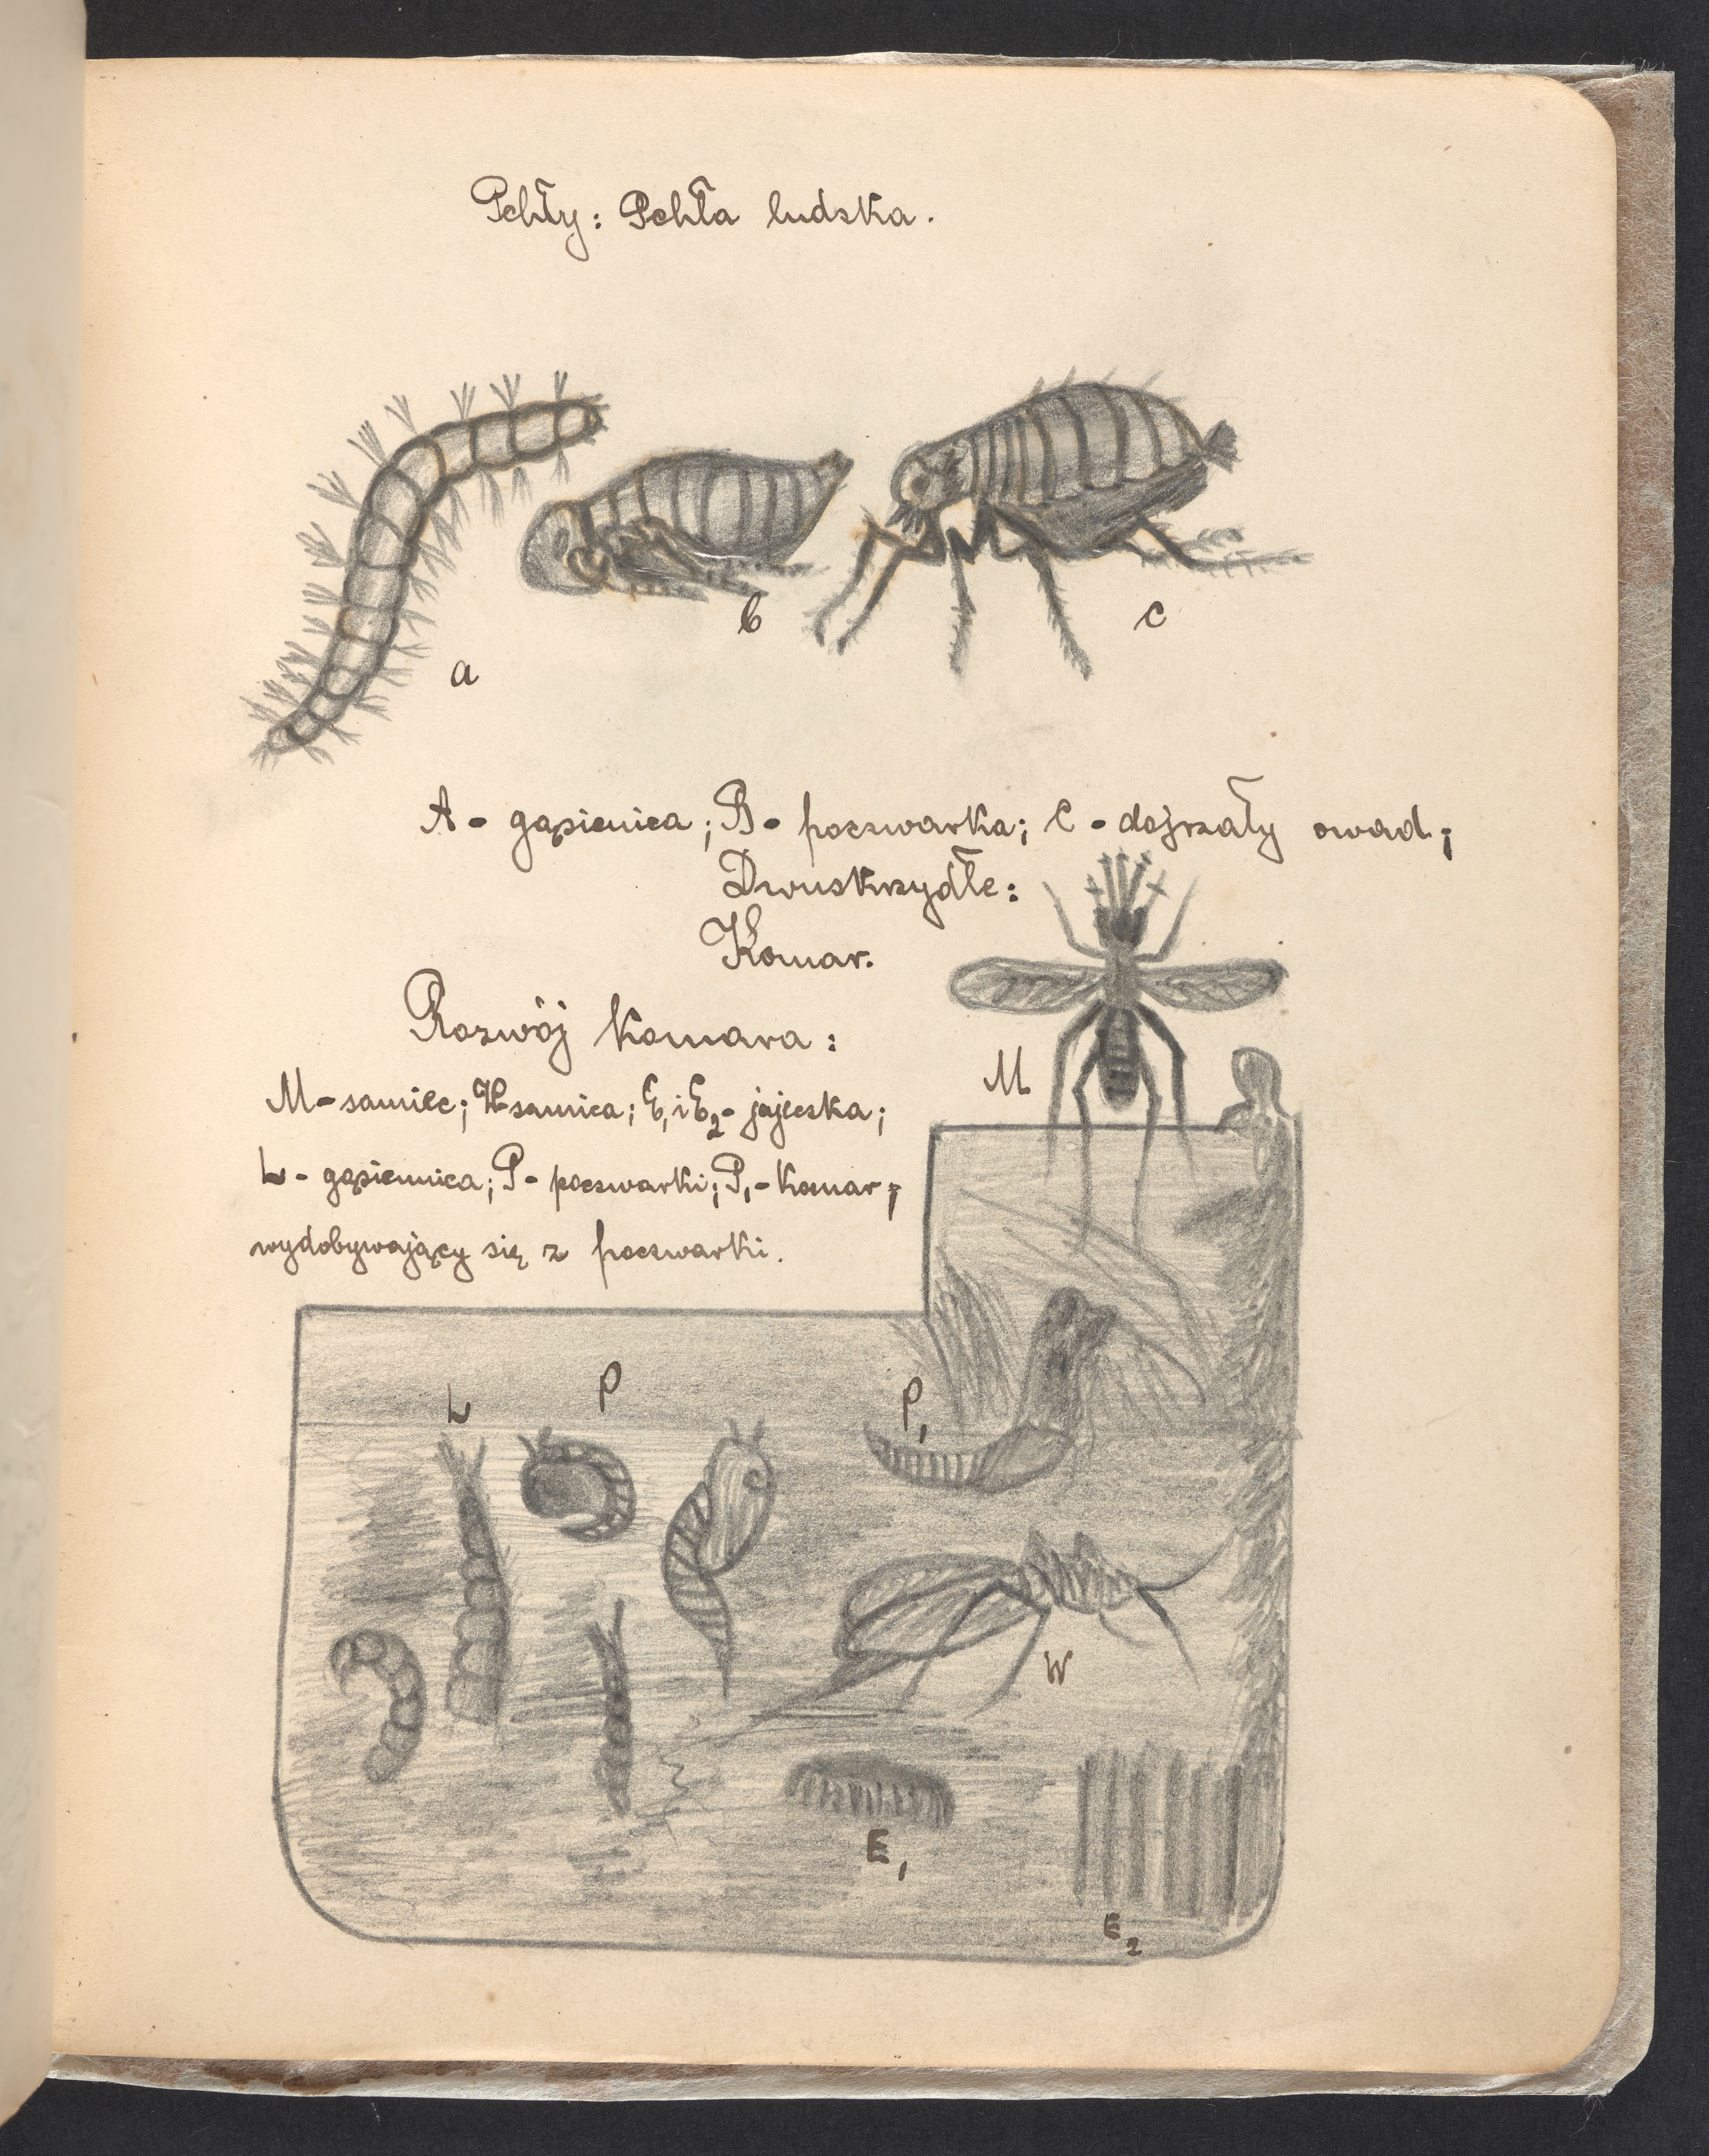 Pchły: Pchła ludzka.
a
b
c
A - gąsienica; B - poczwarka; C - dojrzały owad;
Dwuskrzydłe:
Komar.
Rozwój komara:
M
M - samiec; W - samica; E₁ i E₂ - jajeczka;
L - gąsiennica; P - poczwarki; P₁ - Komar,
wydobywający się z poczwarki.
L
P
P₁
W
E₁
E₂